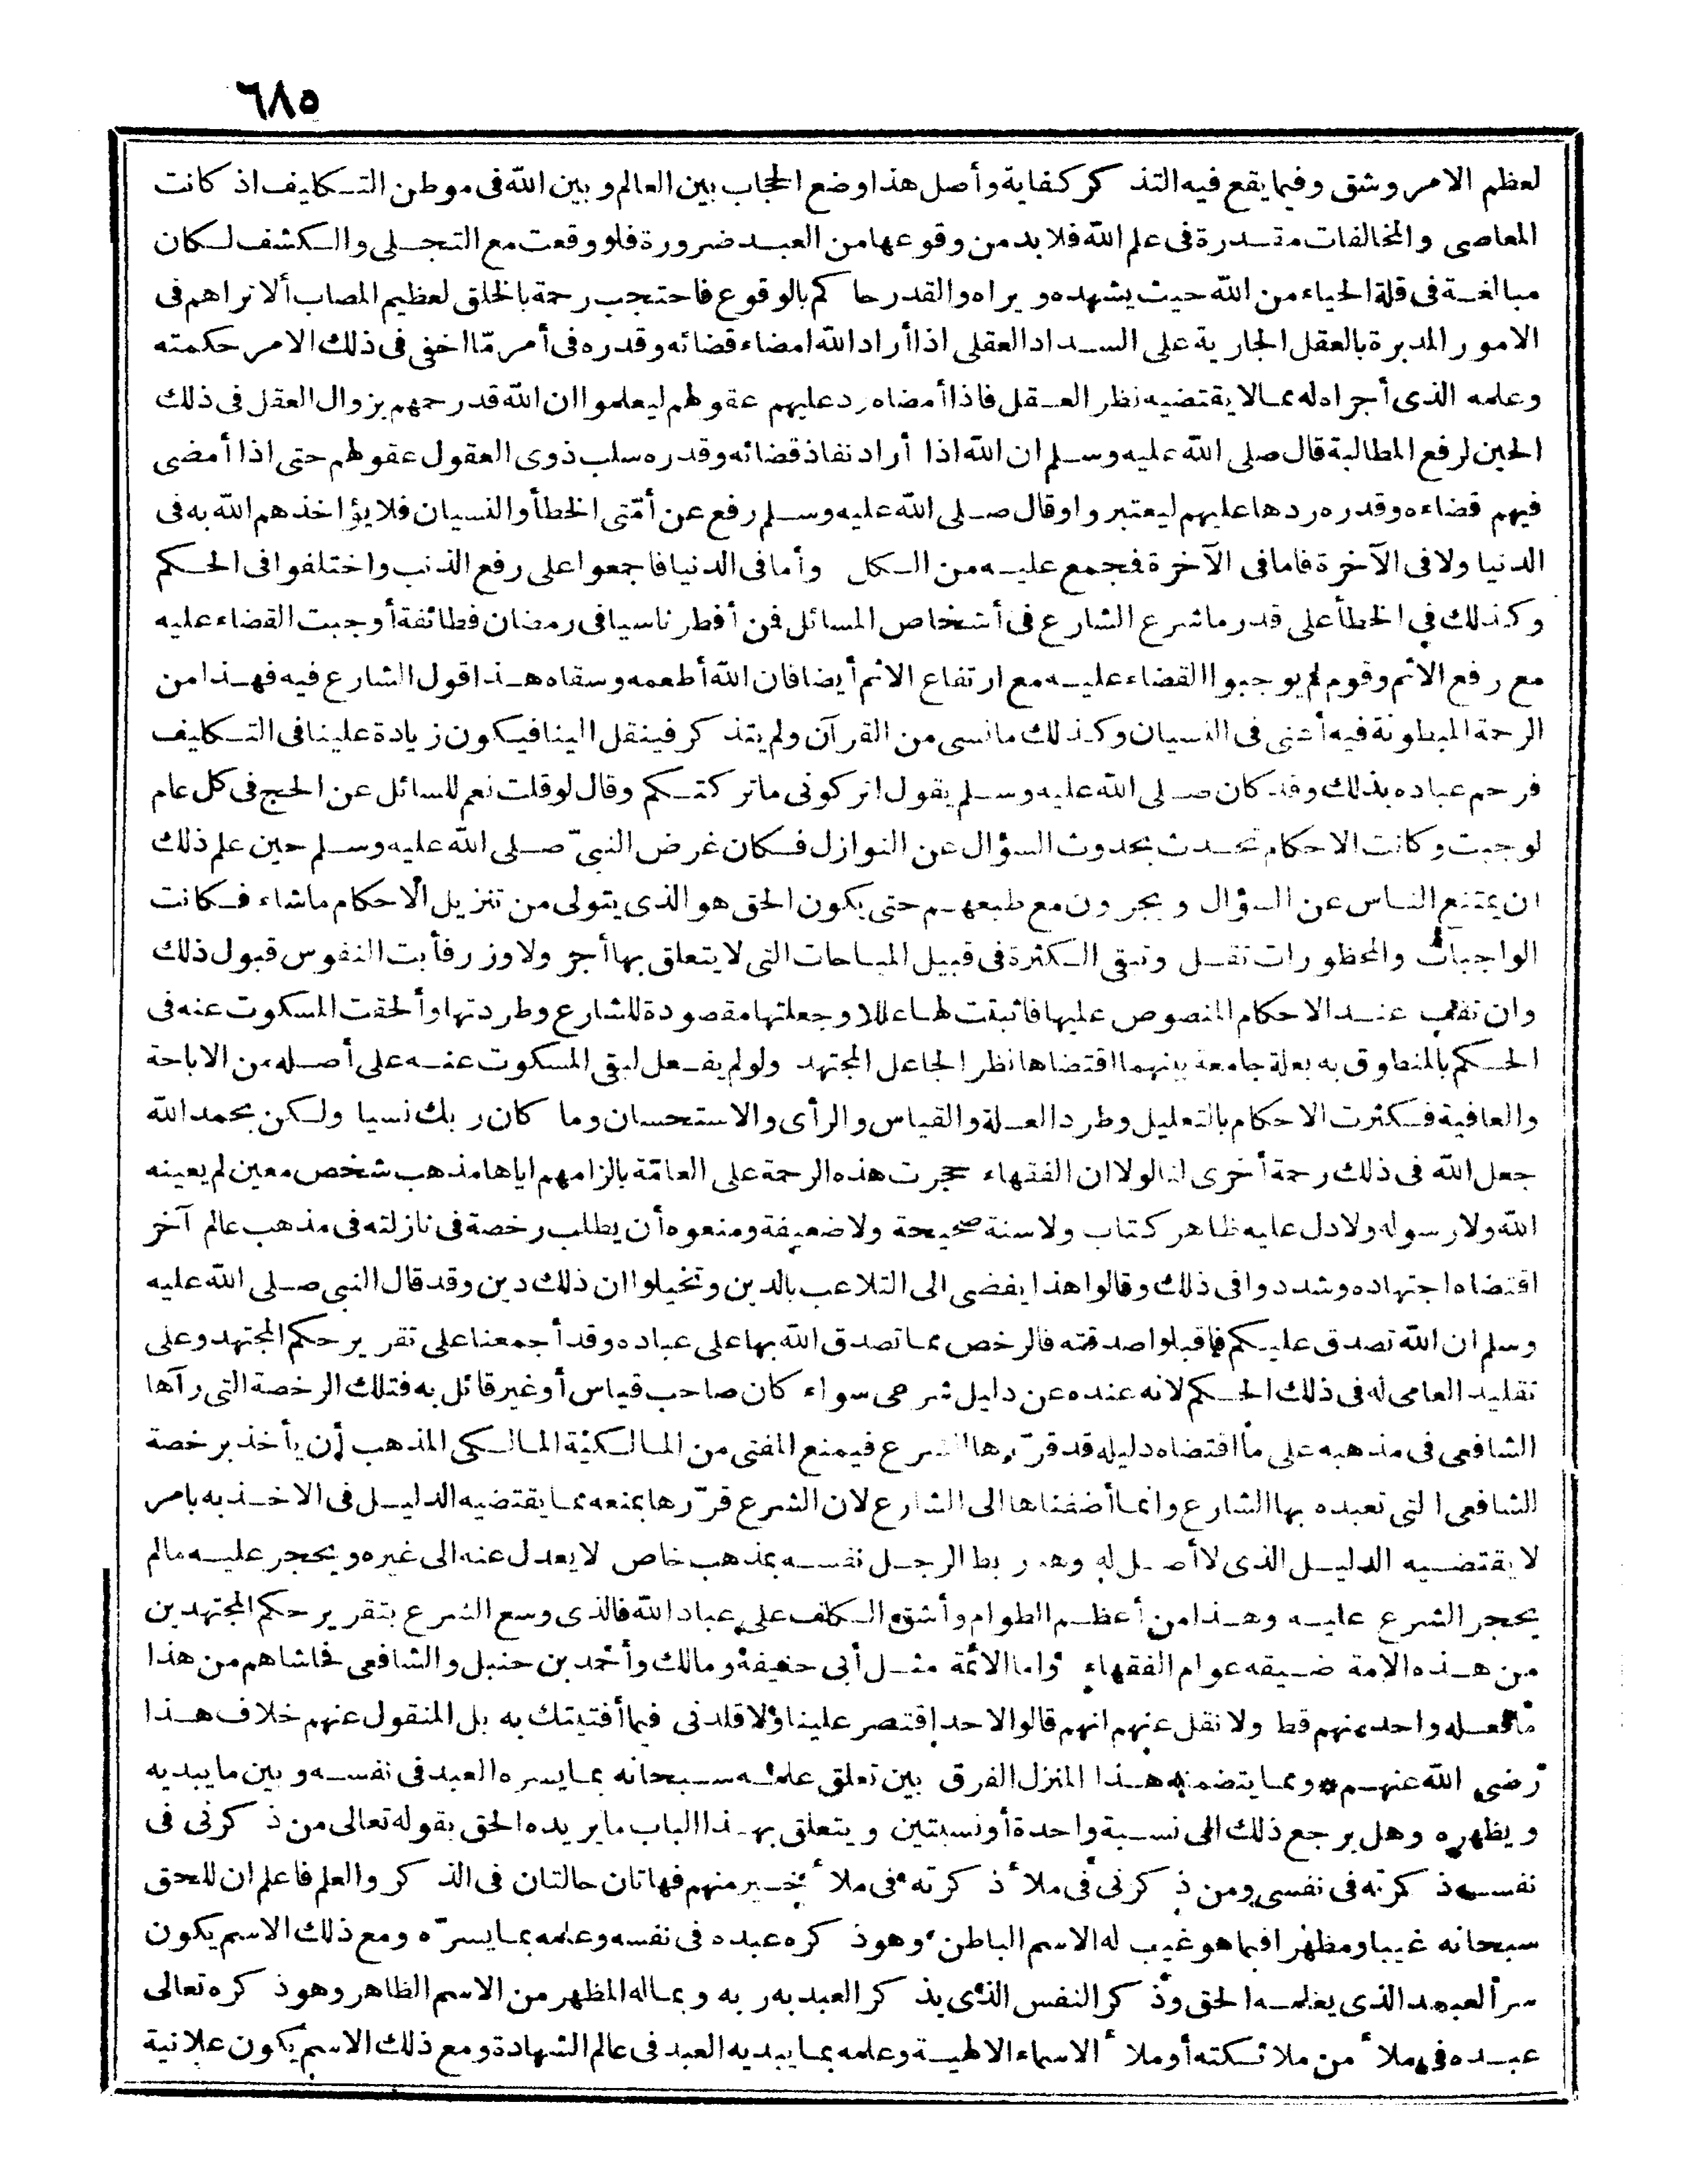 ٦٨٥
لعظم الامر وشق وفيما يقع فيه التذكر كفاية وأصل هذا وضع الحجاب بين العالم وبين الله فى موطن التكليف اذ كانت
المعاصى والمخالفات مقدرة فى علم الله فلا بد من وقوعها من العبد ضرورة فلو وقعت مع التجلى والكشف لكان
مبالغة فى قلة الحياء من الله حيث يشهده ويراه والقدر حاكم بالوقوع فاحتجب رحمة بالخلق لعظيم المصاب ألا تراهم فى
الامور المدبرة بالعقل الجارية على السداد العقلى اذا أراد الله امضاء قضائه وقدره فى أمر مّا اخفى فى ذلك الامر حكمته
وعلمه الذى أجراه له مما لا يقتضيه نظر العقل فاذا أمضاه رد عليهم عقولهم ليعلموا ان الله قد رحمهم بزوال العقل فى ذلك
الحين لرفع المطالبة قال صلى الله عليه وسلم ان الله اذا أراد نفاذ قضائه وقدره سلب ذوى العقول عقولهم حتى اذا أمضى
فيهم قضاءه وقدره ردها عليهم ليعتبروا وقال صلى الله عليه وسلم رفع عن أمّتى الخطأ والنسيان فلا يؤاخذهم الله به فى
الدنيا ولا فى الآخرة فاما فى الآخرة فجمع عليه من الكل وأما فى الدنيا فاجمعوا على رفع الذنب واختلفوا فى الحكم
وكذلك فى الخطأ على قدر ما شرع الشارع فى أشخاص المسائل فمن أفطر ناسيا فى رمضان فطائفة أوجبت القضاء عليه
مع رفع الاثم وقوم لم يوجبوا القضاء عليه مع ارتفاع الاثم أيضا فان الله أطعمه وسقاه هذا قول الشارع فيه فهذا من
الرحمة المبطونة فيه أعنى فى النسيان وكذلك ما نسى من القرآن ولم يتذكر فينقل الينا فيكون زيادة علينا فى التكليف
فرحم عباده بذلك وقد كان صلى الله عليه وسلم يقول اتركونى ما تركتكم وقال لو قلت نعم للسائل عن الحج فى كل عام
لوجبت وكانت الاحكام تحدث بحدوث السؤال عن النوازل فكان غرض النبىّ صلى الله عليه وسلم حين علم ذلك
ان يمتنع الناس عن السؤال ويجرون مع طبعهم حتى يكون الحق هو الذى يتولى من تنزيل الاحكام ما شاء فكانت
الواجبات والمحظورات تقل وتبقى الكثرة فى قبيل المباحات التى لا يتعلق بها أجر ولا وزر فأبت النفوس قبول ذلك
وان تقف عند الاحكام المنصوص عليها فاثبتت لها عللا وجعلتها مقصودة للشارع وطردتها وألحقت المسكوت عنه فى
الحكم بالمنطوق به بعلة جامعة بينهما اقتضاها نظر الجاعل المجتهد ولو لم يفعل لبقى المسكوت عنه على أصله من الاباحة
والعافية فكثرت الاحكام بالتعليل وطرد العلة والقياس والرأى والاستحسان وما كان ربك نسيا ولكن بحمد الله
جعل الله فى ذلك رحمة أخرى لنا لولا ان الفقهاء حجرت هذه الرحمة على العامّة بالزامهم اياها مذهب شخص معين لم يعينه
الله ولا رسوله ولا دل عليه ظاهر كتاب ولا سنة صحيحة ولا ضعيفة ومنعوه أن يطلب رخصة فى نازلته فى مذهب عالم آخر
اقتضاه اجتهاده وشددوا فى ذلك وقالوا هذا يفضى الى التلاعب بالدين وتخيلوا ان ذلك دين وقد قال النبى صلى الله عليه
وسلم ان الله تصدق عليكم فاقبلوا صدقته فالرخص مما تصدق الله بها على عباده وقد أجمعنا على تقرير حكم المجتهد وعلى
تقليد العامى له فى ذلك الحكم لانه عنده عن دليل شرعى سواء كان صاحب قياس أو غير قائل به فتلك الرخصة التى رآها
الشافعى فى مذهبه على ما اقتضاه دليله قد قرّرها الشرع فيمنع المفتى من المالكية المالكى المذهب أن يأخذ برخصة
الشافعى التى تعبده بها الشارع وانما أضفناها الى الشارع لان الشرع قرّرها يمنعه مما يقتضيه الدليل فى الاخذ به بامر
لا يقتضيه الدليل الذى لا أصل له وهو ربط الرجل نفسه بمذهب خاص لا يعدل عنه الى غيره ويحجر عليه ما لم
يحجر الشرع عليه وهذا من أعظم الطوام وأشق الكلف على عباد الله فالذى وسع الشرع بتقرير حكم المجتهدين
من هذه الامة ضيقه عوام الفقهاء واما الائمة مثل أبى حنيفة ومالك وأحمد بن حنبل والشافعى فحاشاهم من هذا
ما فعله واحد منهم قط ولا نقل عنهم انهم قالوا لاحد اقتصر علينا ولا قلدنى فيما أفتيتك به بل المنقول عنهم خلاف هذا
رضى الله عنهم * ومما يتضمنه هذا المنزل الفرق بين تعلق علمه سبحانه بما يسره العبد فى نفسه وبين ما يبديه
ويظهره وهل يرجع ذلك الى نسبة واحدة أو نسبتين ويتعلق بهذا الباب ما يريده الحق بقوله تعالى من ذكرنى فى
نفسه ذكرته فى نفسى ومن ذكرنى فى ملأ ذكرته فى ملأ خير منهم فهاتان حالتان فى الذكر والعلم فاعلم ان للحق
سبحانه غيبا ومظهرا فبما هو غيب له الاسم الباطن وهو ذكره عبده فى نفسه وعلمه بما يسرّه ومع ذلك الاسم يكون
سرّ العبد الذى يعلمه الحق وذكر النفس الذى يذكر العبد به ربه وبما له المظهر من الاسم الظاهر وهو ذكره تعالى
عبده فى ملأ من ملائكته أو ملأ الاسماء الالهية وعلمه بما يبديه العبد فى عالم الشهادة ومع ذلك الاسم يكون علانية